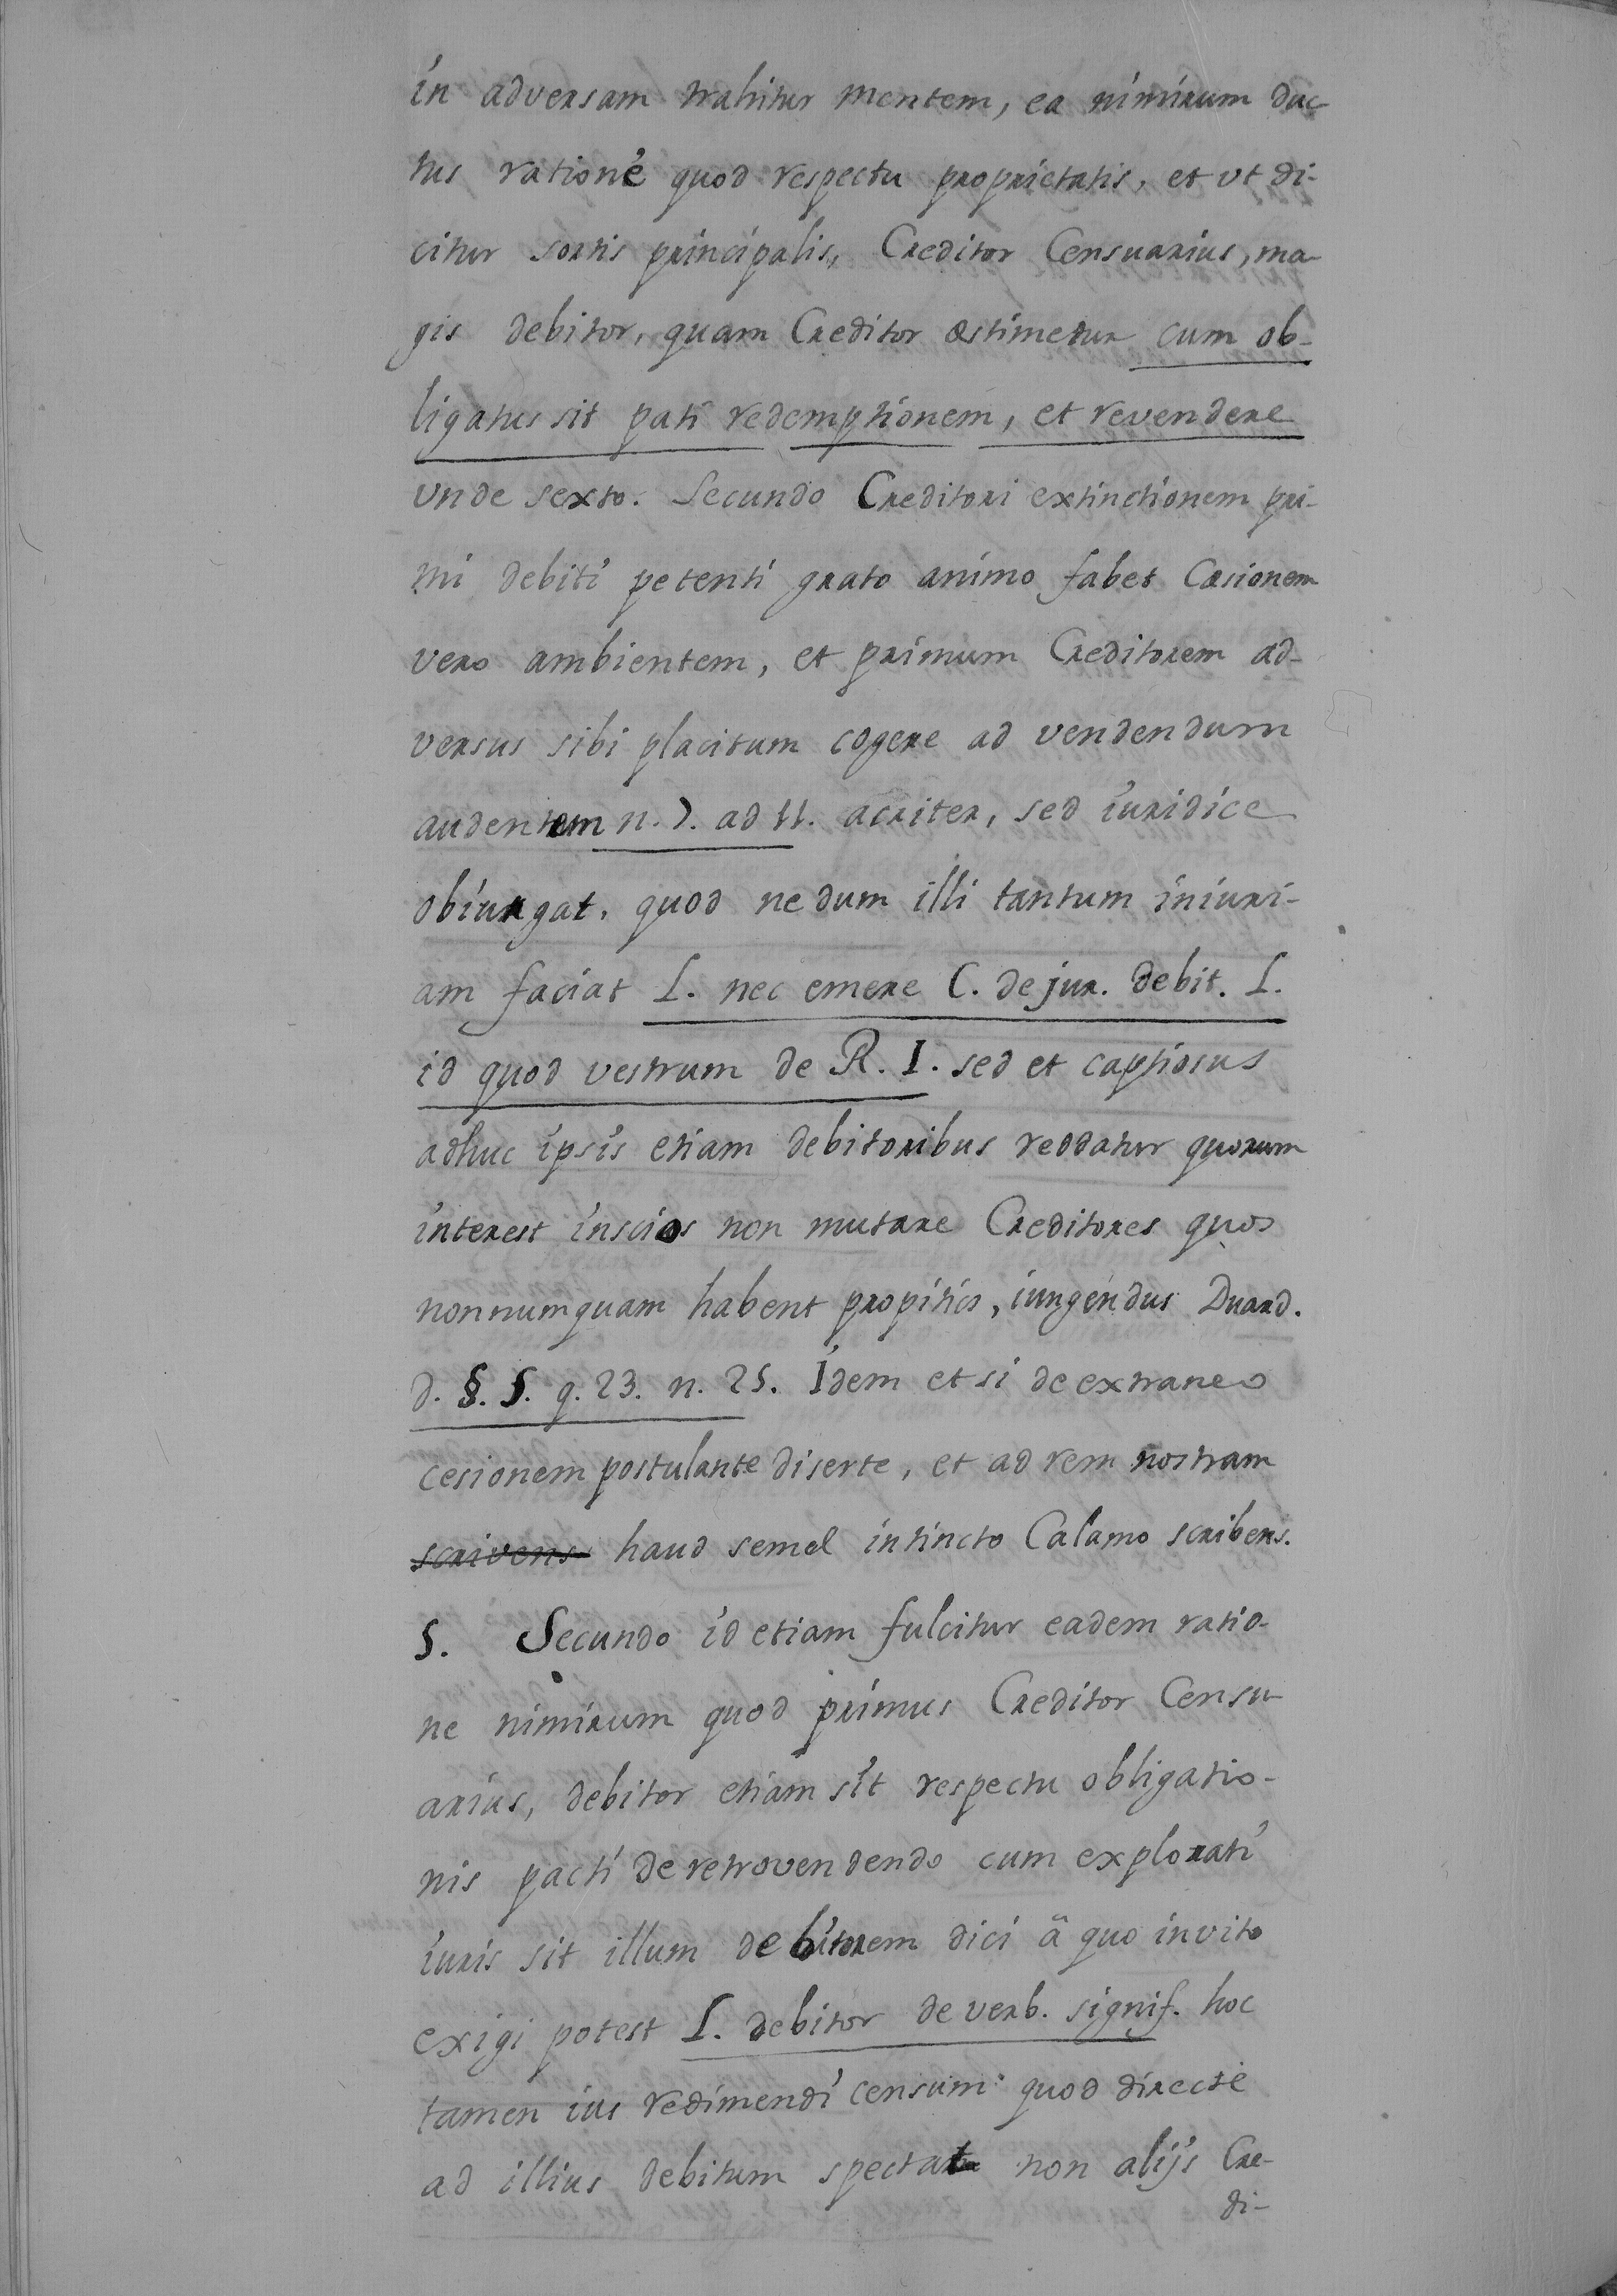 in adversam trahitur mentem, ea nimirum duc-
tus ratione quod respectu proprietatis, et vt di-
citur sortis principalis, Creditor Censuarius, ma-
gis debitor, quam Creditor æstimetur cum ob-
ligatus sit pati redemptionem, et revendere
vnde sexto. Secundo Creditori extinctionem pri-
mi debiti petenti grato animo fabet Cæsionem
vero ambientem, et primum Creditorem ad-
versus sibi placitum cogere ad vendendum
audentem n. 7. ad 11. acriter, sed iuridice
obiurgat, quod ne dum illi tantum iniuri-
am faciat L. nec emere C. de jur. debit. L.
id quod vestrum de R. I. sed et captiosus
adhuc ipsis etiam debitoribus reddatur quorum
interest inscios non mutare Creditores quos
nonnumquam habent propitios, iungendus Duard.
d. §. 5. q. 23. n. 25. Idem et si de extraneo
cesionem postulante diserte, et ad rem nostram
scrivens haud semel intincto Calamo scribens.
5. Secundo id etiam fulcitur eadem ratio-
ne nimirum quod primus Creditor Censu-
arius, debitor etiam sit respectu obligatio-
nis pacti de retrovendendo cum explorati
iuris sit illum debitorem dici â quo invito
exigi potest L. debitor de verb. signif. hoc
tamen ius redimendi censum quod directè
ad illius debitum spectat non alijs Cre-
di-